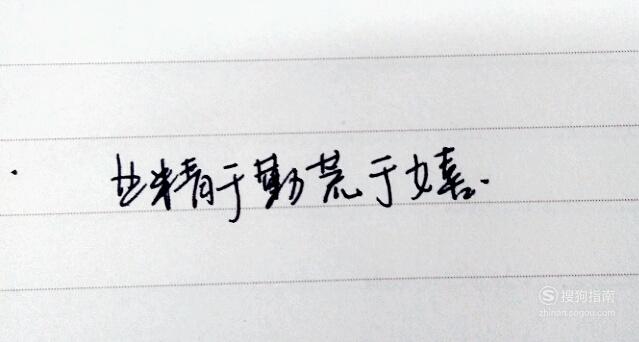 业精于勤荒于嬉.
搜狗指南
zhinan.sogou.com